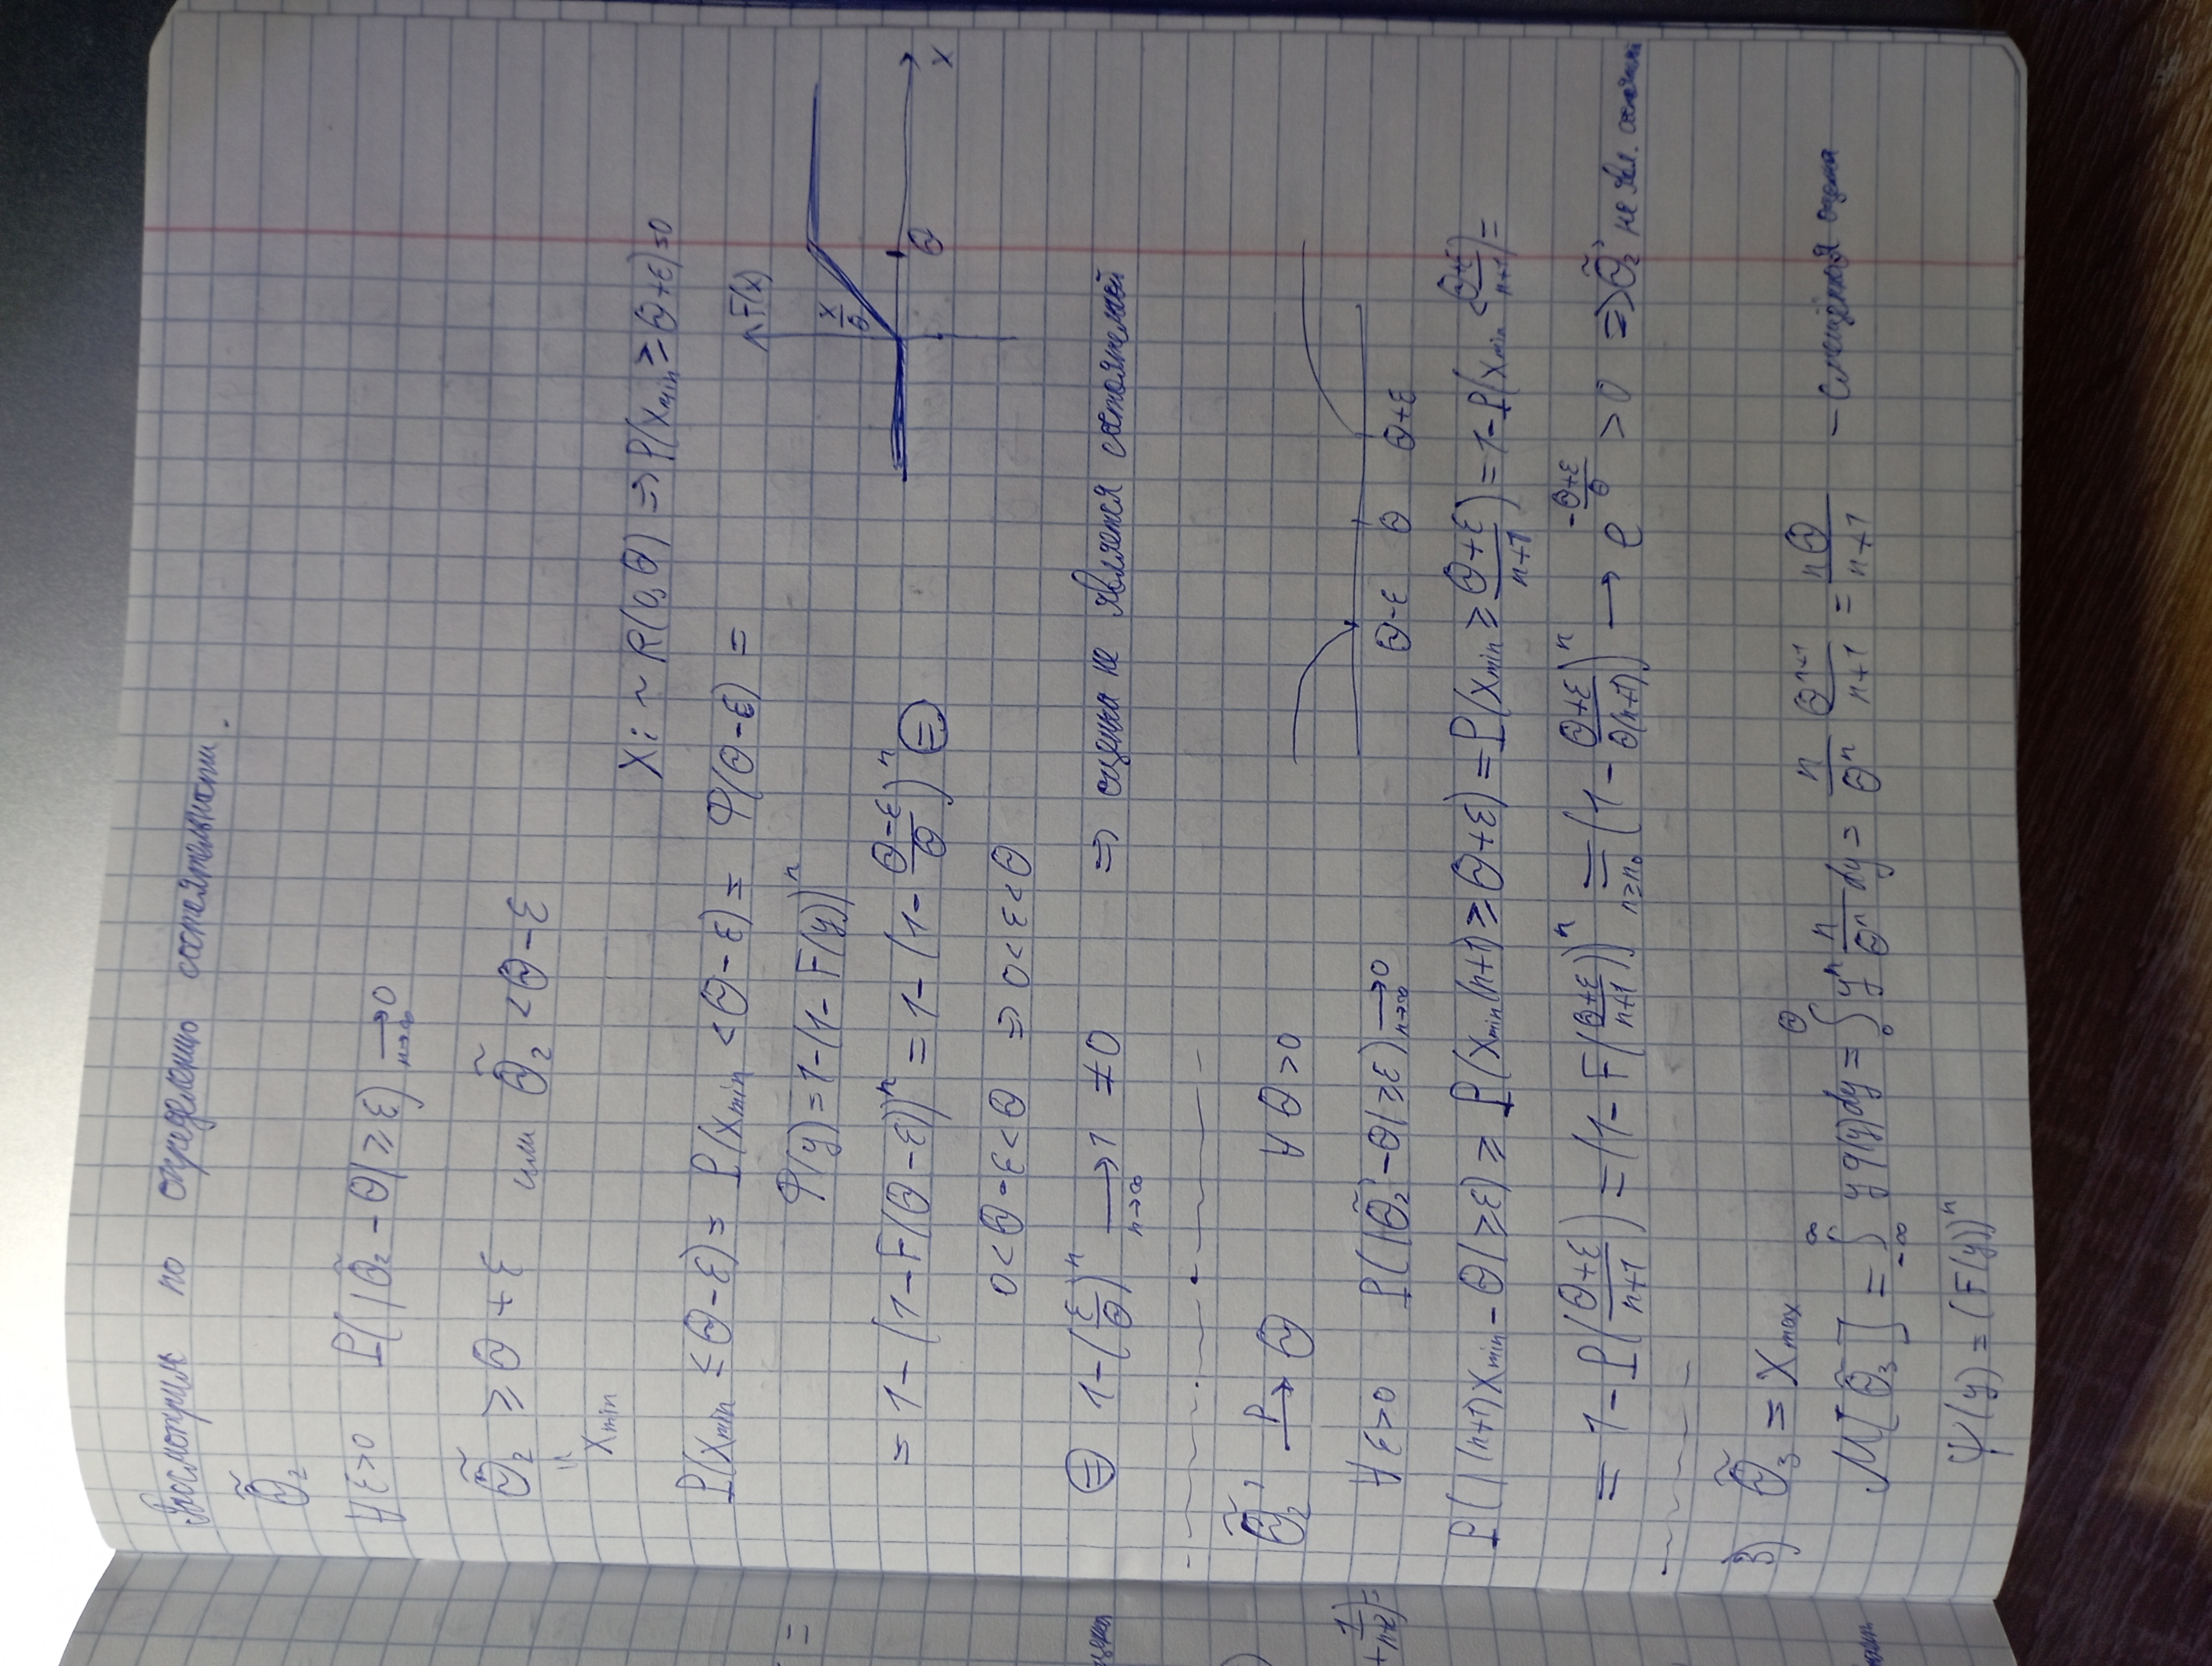 Рассмотрим по определению состоятельности.
θ̃₂
∀ε>0 P(|θ̃₂ - θ| ≥ ε) ⟶ 0 n→∞
θ̃₂ ≥ θ + ε или θ̃₂ < θ - ε
"
x min
Xi ~ R(0, θ) ⇒ P(x min ≥ θ+ε)=0
P(x min ≤ θ-ε) = P(x min < θ-ε) = Φ(θ-ε) =
F(x)
Φ(y) = 1-(1- F(y))ⁿ
x/θ
= 1-(1-F(θ-ε))ⁿ = 1-(1- (θ-ε)/θ)ⁿ ⊜
θ
x
0<θ-ε<θ ⇒ 0<ε<θ
⊜ 1-(ε/θ)ⁿ ⟶ 1 ≠ 0 n→∞ ⇒ оценка не является состоятельной
θ̃₂' P⟶ θ ∀ θ>0
θ-ε θ θ+ε
∀ε>0 P(|θ̃₂' - θ| ≥ ε) ⟶ 0 n→∞
P(|(n+1)x min - θ| ≥ ε) ≥ P(x min (n+1) ≥ θ+ε) = P(x min ≥ (θ+ε)/(n+1)) = 1-P(x min < (θ+ε)/(n+1)) =
= 1-Φ((θ+ε)/(n+1)) = (1- F((θ+ε)/(n+1)))ⁿ = n≥n₀ (1- (θ+ε)/(θ(n+1)))ⁿ ⟶ e^(-(θ+ε)/θ) > 0 ⇒ θ̃₂' не явл.
3) θ̃₃ = x max
M[θ̃₃] = ∫_{-∞}^{∞} y φ(y)dy = ∫_0^θ yⁿ n/θⁿ dy = n/θⁿ θⁿ⁺¹/(n+1) = nθ/(n+1) - смещённая оценка
Ψ(y) = (F(y))ⁿ